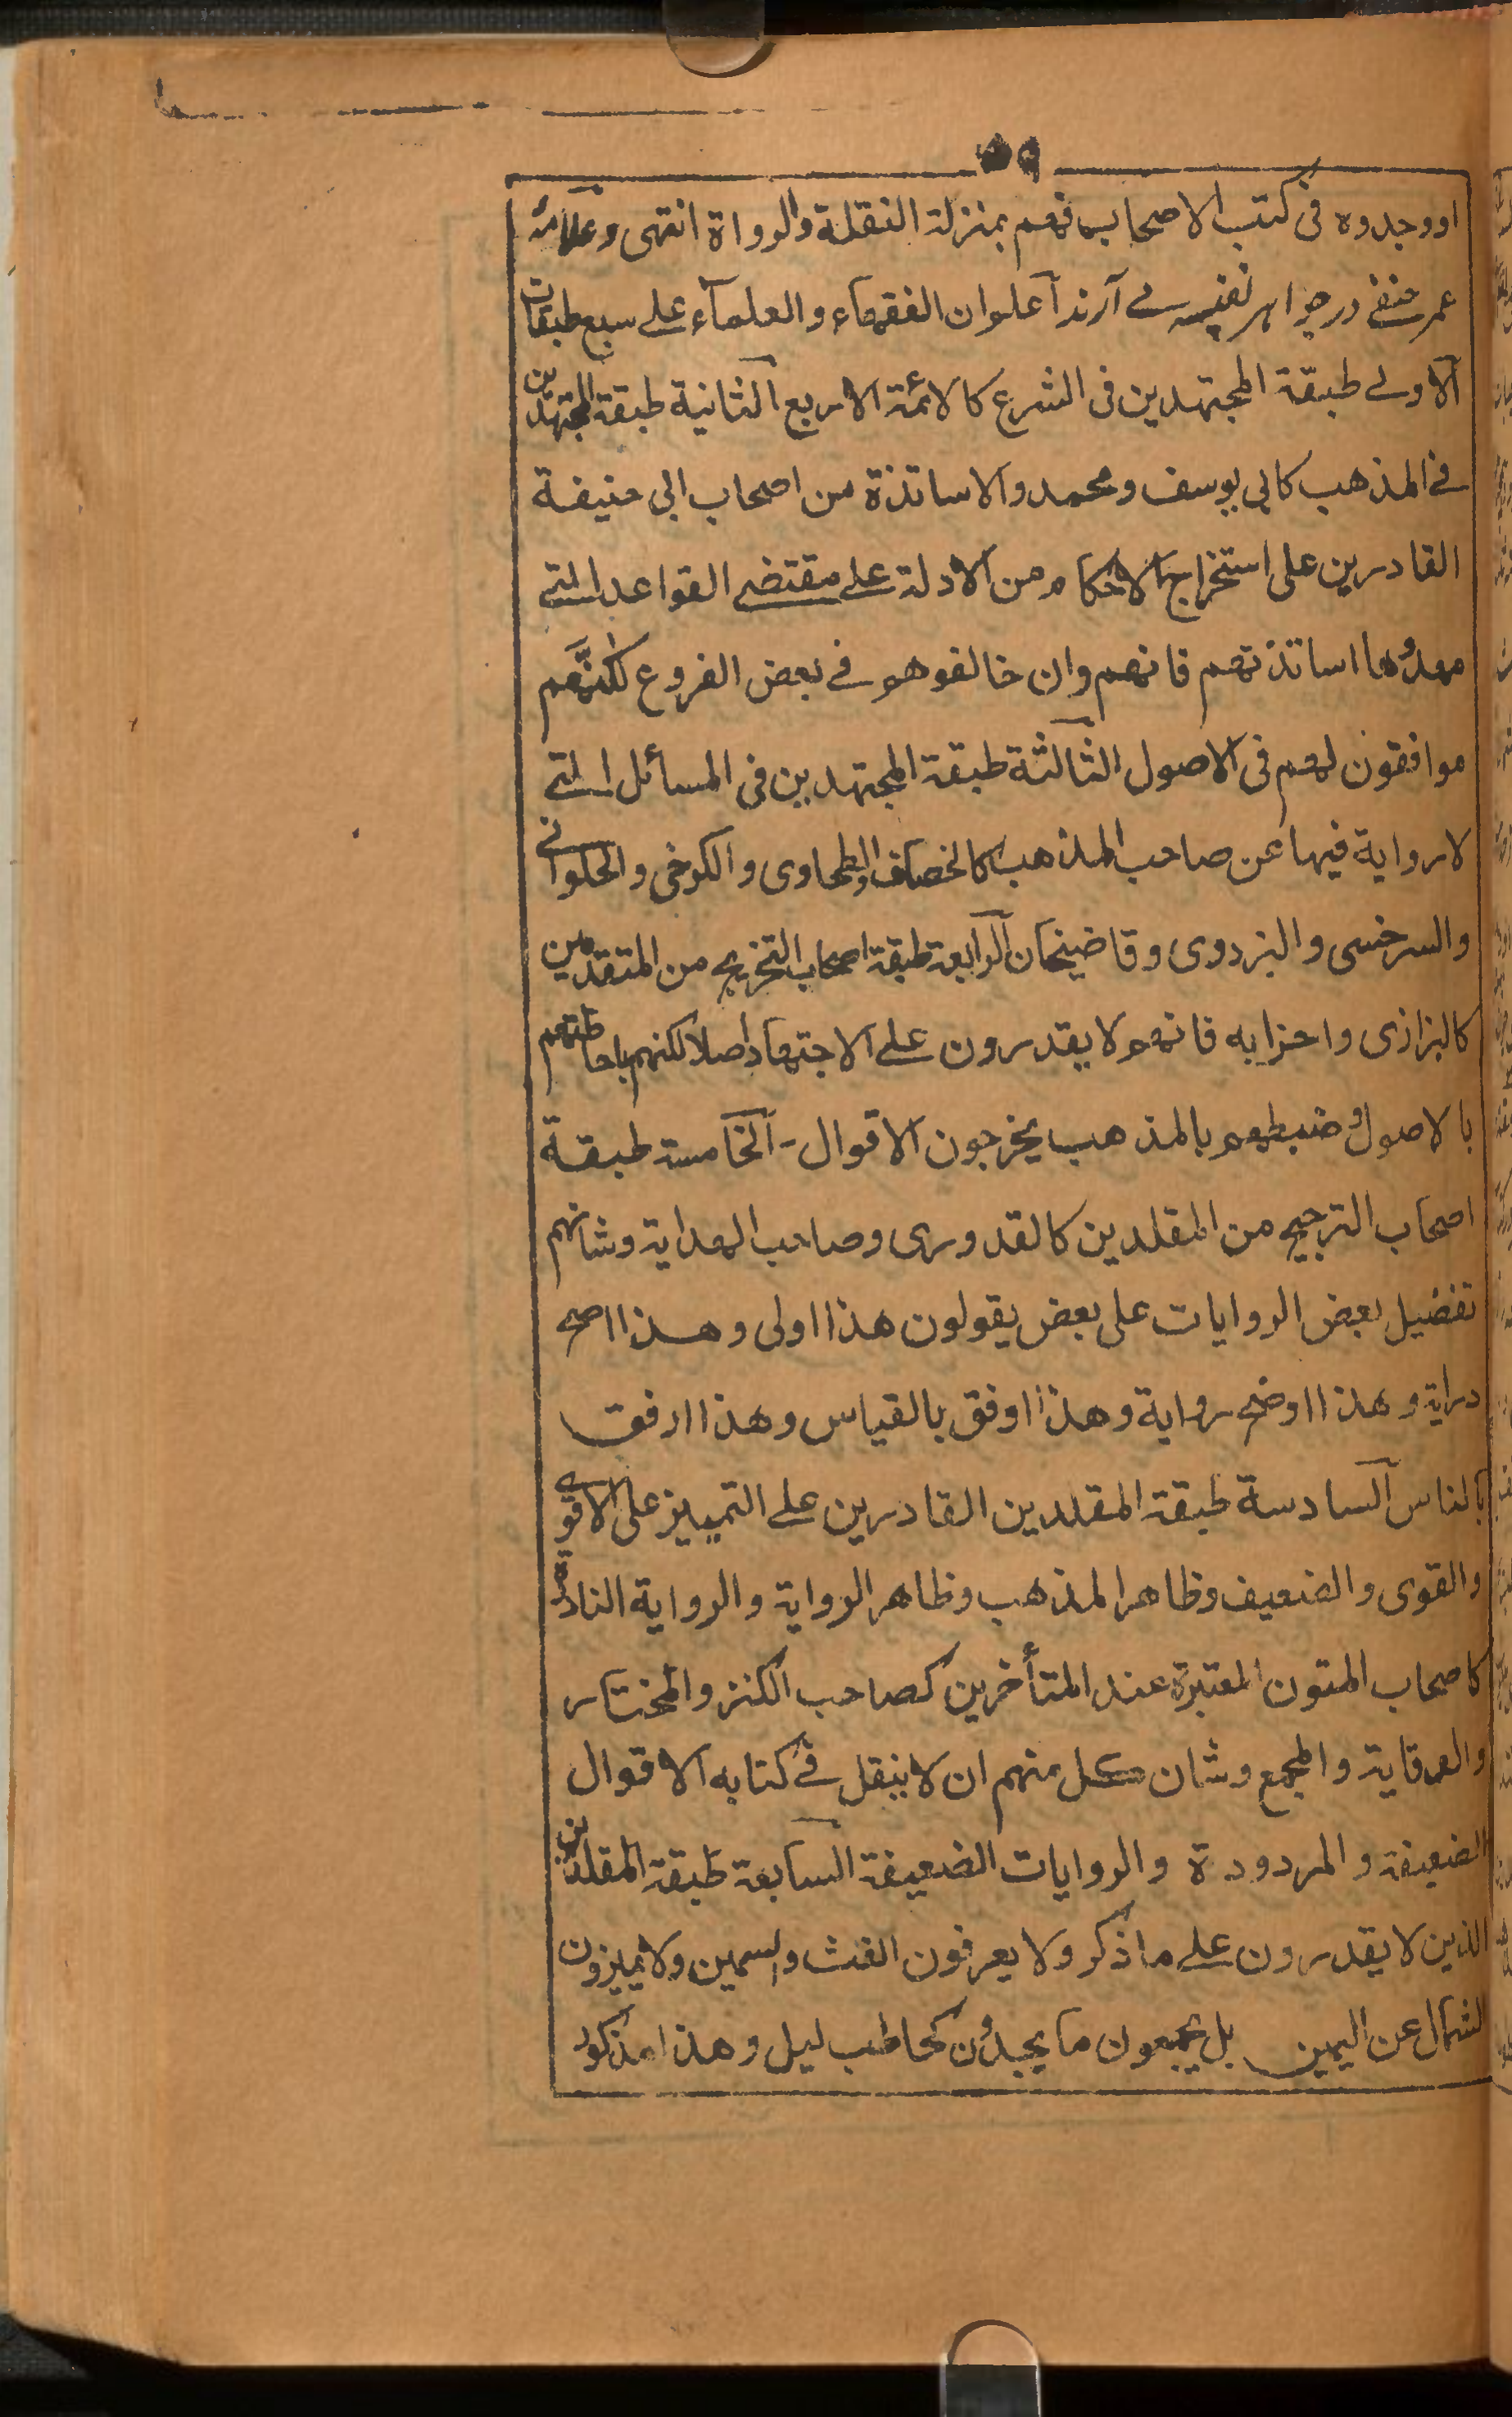 اووجدوه فى كتب الاصحاب فهم بمنزلة النقلة والرواة انتهى وعلامۂ
عمر حنفے در جواہر نفیسہ مے آرند اعلم ان الفقهاء والعلماء علے سبع طبقات
الاولے طبقة المجتهدين فى الشرع كالائمة الاربع الثانية طبقة المجتهدين
فے المذهب كابى يوسف ومحمد والاساتذة من اصحاب ابى حنيفة
القادرين على استخراج الاحكام من الادلة علے مقتضے القواعد التے
مهدوها اساتذتهم فانهم وان خالفوهم فے بعض الفروع لكنهم
موافقون لهم فى الاصول الثالثة طبقة المجتهدين فى المسائل التے
لا رواية فيها عن صاحب المذهب كالخصاف والطحاوى والكرخى والحلوانے
والسرخسى والبزدوى وقاضيخان الرابعة طبقة اصحاب التخريج من المتقدمين
كالبزازى واحزابه فانهم لا يقدرون علے الاجتهاد اصلا لكنهم باحاطتهم
بالاصول وضبطهم بالمذهب يخرجون الاقوال - الخامسة طبقة
اصحاب الترجيح من المقلدين كالقدورى وصاحب الهداية وشانهم
تفضيل بعض الروايات على بعض يقولون هذا اولى وهذا اصح
دراية وهذا اوضح رواية وهذا اوفق بالقياس وهذا ارفق
بالناس السادسة طبقة المقلدين القادرين علے التمييز على الاقوے
والقوى والضعيف وظاهر المذهب وظاهر الرواية والرواية النادرة
كاصحاب المتون المعتبرة عند المتأخرين كصاحب الكنز والمختار
والوقاية والمجمع وشان كل منهم ان لا ينقل فے كتابه الاقوال
الضعيفة والمردودة والروايات الضعيفة السابعة طبقة المقلدين
الذين لا يقدرون علے ما ذكر ولا يعرفون الغث والسمين ولا يميزون
الشمال عن اليمين بل يجمعون ما يجدون كحاطب ليل وهذا مذكور